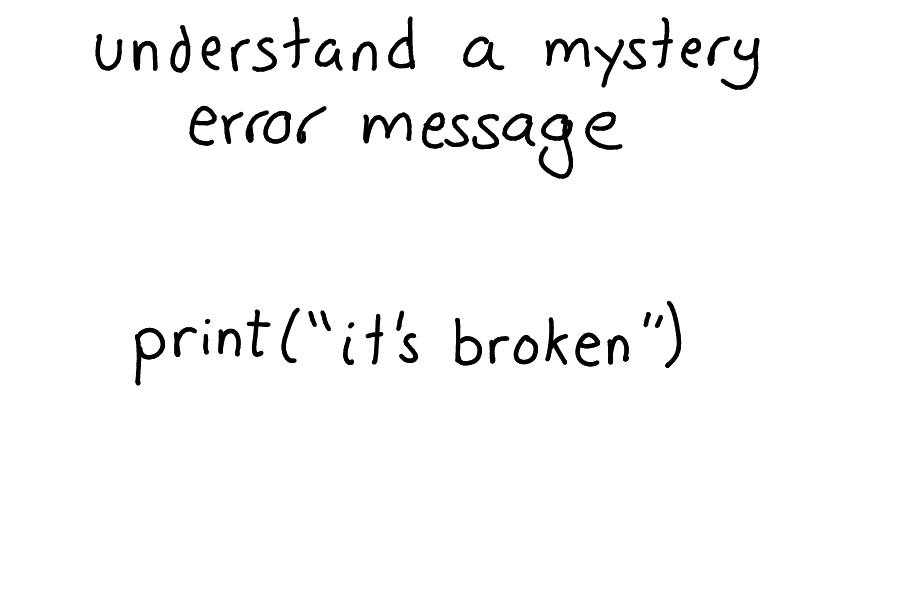 understand a mystery
error message
print("it's broken")